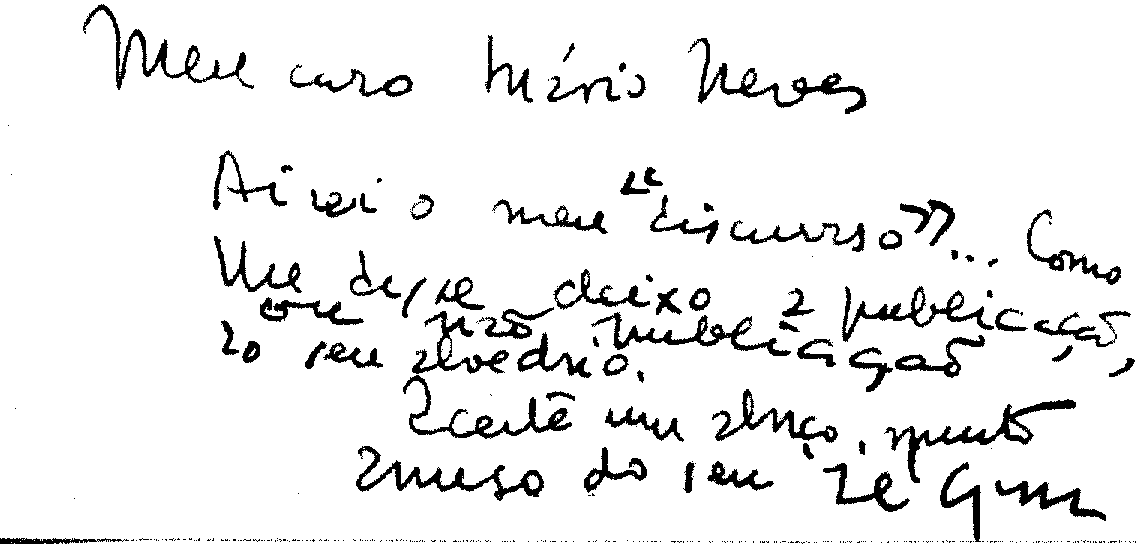 Meu caro Mário Neves
Aí vai o meu "discurso"... Como
lhe disse deixo a publicação,
ou não publicação
ao seu alvedrio.
Aceite um abraço, muito
amigo do seu Zé